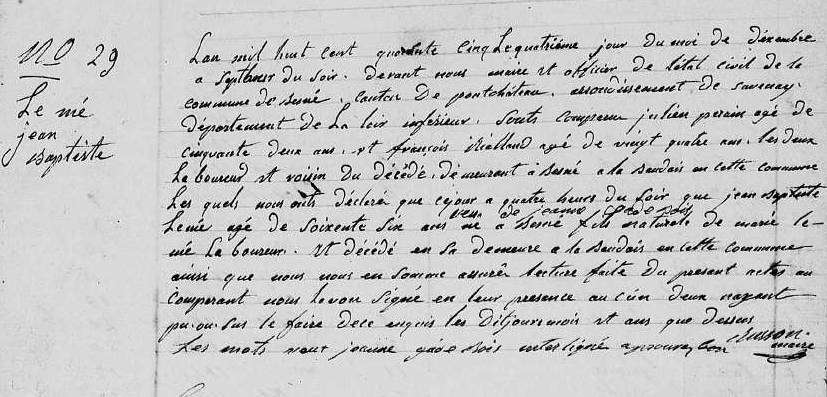 No 29
Le mé
jean
Baptiste
L'an mil huit cent quarante cinq Le quatriéme jour du moi de décembre
a sept heur du soir. devant nous maire et officier de létat civil de la
commune de Besné, canton De pontchâteau, arrondissement de savenay,
département de La loir inferieur. Sonts comparru julien perain agé de
cinquante deux ans. et françois Rialland agé de vingt quatre ans. les deux
La boureur et voisin du décédé, demeurent à Besné a la Baudais en cette commune
Les quels nous onts déclaré que ce jour a quatre heurs du soir que jean Baptiste
veuf de jeanne Gadebois
Lemé agé de soixente six ans né a Besné fils naturel de marie le-
mé La boureur. Et décédé en sa demeure a la Baudais en cette commune
ainsi que nous nous en somme assuré lecture faite du présent acte au
comperant nous Lavon signé en leur presence aucun deux nayent
pu ou su le faire de ce enquis les Dit jour mois et ans que dessus
Les mots veuf jeanne gade Bois interligné approuvez bon
maire